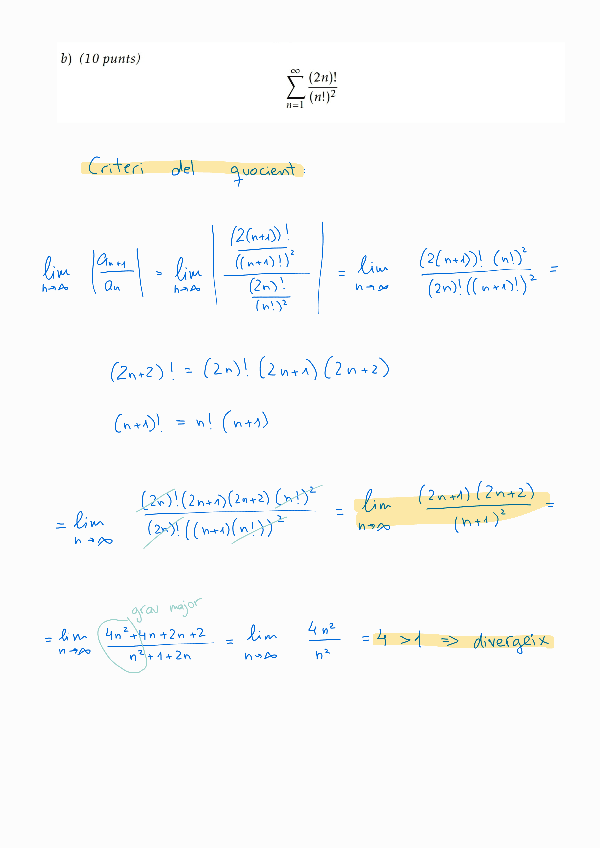 b) (10 punts)
∑_{n=1}^{∞} (2n)!/(n!)²
Criteri del quocient:
lim_{n→∞} |a_{n+1}/a_n| = lim_{n→∞} |((2(n+1))!/((n+1)!)²)/((2n)!/(n!)²)| = lim_{n→∞} ((2(n+1))! (n!)²)/((2n)! ((n+1)!)²) =
(2n+2)! = (2n)! (2n+1) (2n+2)
(n+1)! = n! (n+1)
= lim_{n→∞} ((2n)! (2n+1) (2n+2) (n!)²)/((2n)! ((n+1)(n!))²) = lim_{n→∞} ((2n+1) (2n+2))/(n+1)² =
grau major
= lim_{n→∞} (4n²+4n+2n+2)/(n²+1+2n) = lim_{n→∞} 4n²/n² = 4 >1 => divergeix